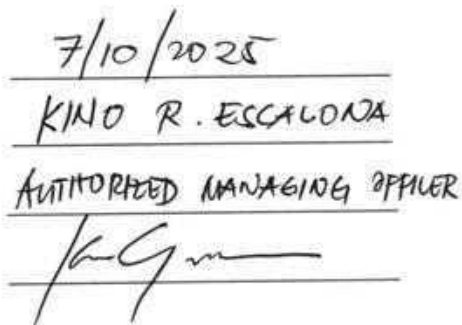 7/10/2025
KINO R. ESCALONA
AUTHORIZED MANAGING OFFICER